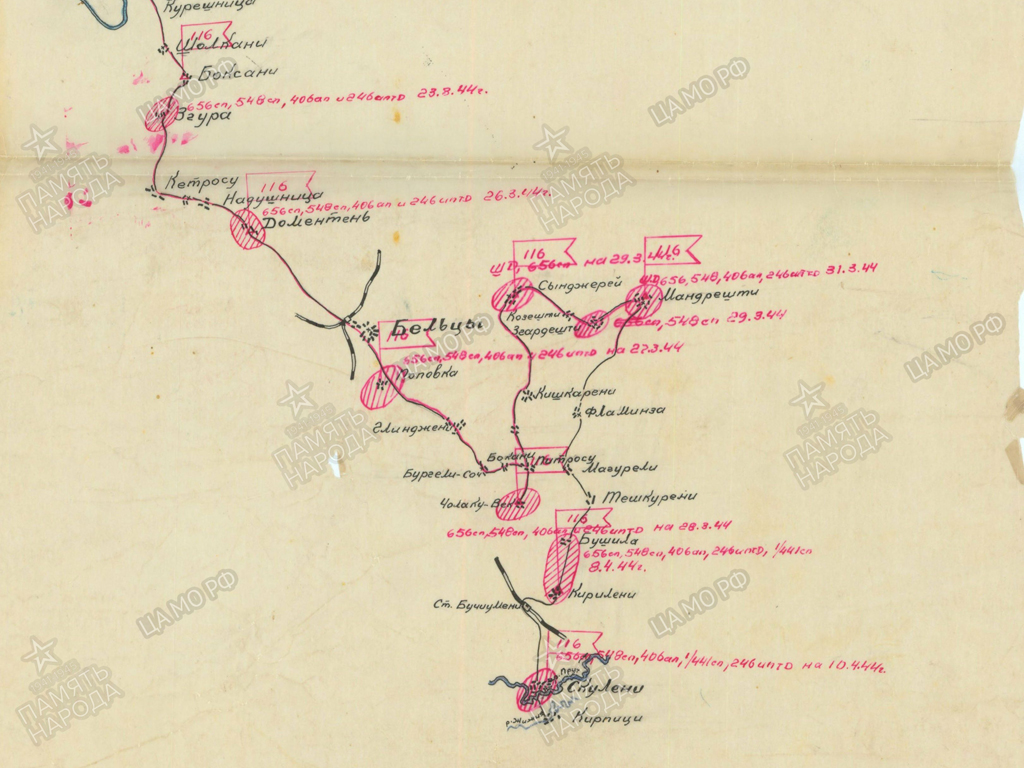 Курешница
116
Шолкани
Боксани
656сп, 548сп, 406ап и 246иптд 23.3.44г.
Згура
Кетросу
Надушница
116
656сп, 548сп, 406ап и 246иптд 26.3.44г.
Доментень
116
116
ШД, 656сп на 29.3.44г.
Сынджерей
ШД 656, 548, 406ап, 246иптд 31.3.44
Мандрешти
Козешти
Згардешти
656сп, 548сп 29.3.44
Бельцы
116
656сп, 548сп, 406ап и 246иптд на 27.3.44
Поповка
Кишкарени
Фламинза
Глинджени
Боканц
Патросу
Магурели
Бурсели-Соч
Чолаку-Век
Тешкурени
116
656сп, 548сп, 406ап и 246иптд на 28.3.44
Бушила
656сп, 548сп, 406ап, 246иптд, 1/441сп
8.4.44г.
Кирилени
Ст. Бучиумени
116
656сп, 548сп, 406ап, 1/441сп, 246иптд на 10.4.44г.
Прут
Скулени
р. Жижия
Кирпици
ПАМЯТЬ НАРОДА
ЦАМО.РФ